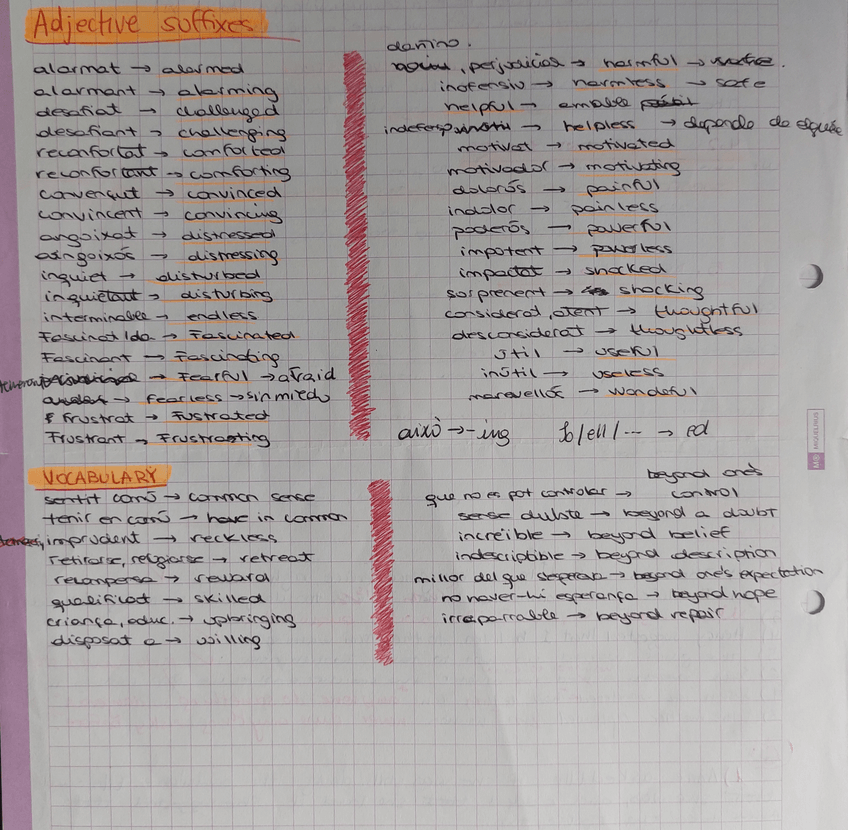 Adjective suffixes
alarmat → alarmed
alarmant → alarming
desafiat → challenged
desafiant → challenging
reconfortat → comforted
reconfortant → comforting
convençut → convinced
convincent → convincing
angoixat → distressed
angoixós → distressing
inquiet → disturbed
inquietant → disturbing
interminable → endless
Fascinat/da → Fascinated
Fascinant → Fascinating
→ Fearful → afraid
→ Fearless → sin miedo
Frustrat → Fustrated
Frustrant → Frustrating
damino.
, perjudiciós → harmful →
inofensiv → harmless → safe
helpful → amable
→ helpless → depende de
motivat → motivated
motivador → motivating
dolorós → painful
indolor → painless
poderós → powerful
impotent → powerless
impactat → shocked
sorprenent → shocking
considerat, atent → thoughtful
desconsiderat → thoughtless
útil → useful
inútil → useless
maravellós → wonderful
això → -ing Jo/ell/... → ed
VOCABULARY
sentit comú → common sense
tenir en comú → have in common
imprudent → reckless
retirarse, refugiarse → retreat
recompensa → reward
qualificat → skilled
criança, educ. → upbringing
disposat a → willing
beyond one's
que no es pot controlar → control
sense dubte → beyond a doubt
increïble → beyond belief
indescriptible → beyond description
millor del que s'esperava → beyond one's expectation
no haver-hi esperança → beyond hope
irreparrable → beyond repair
MIQUELRIUS